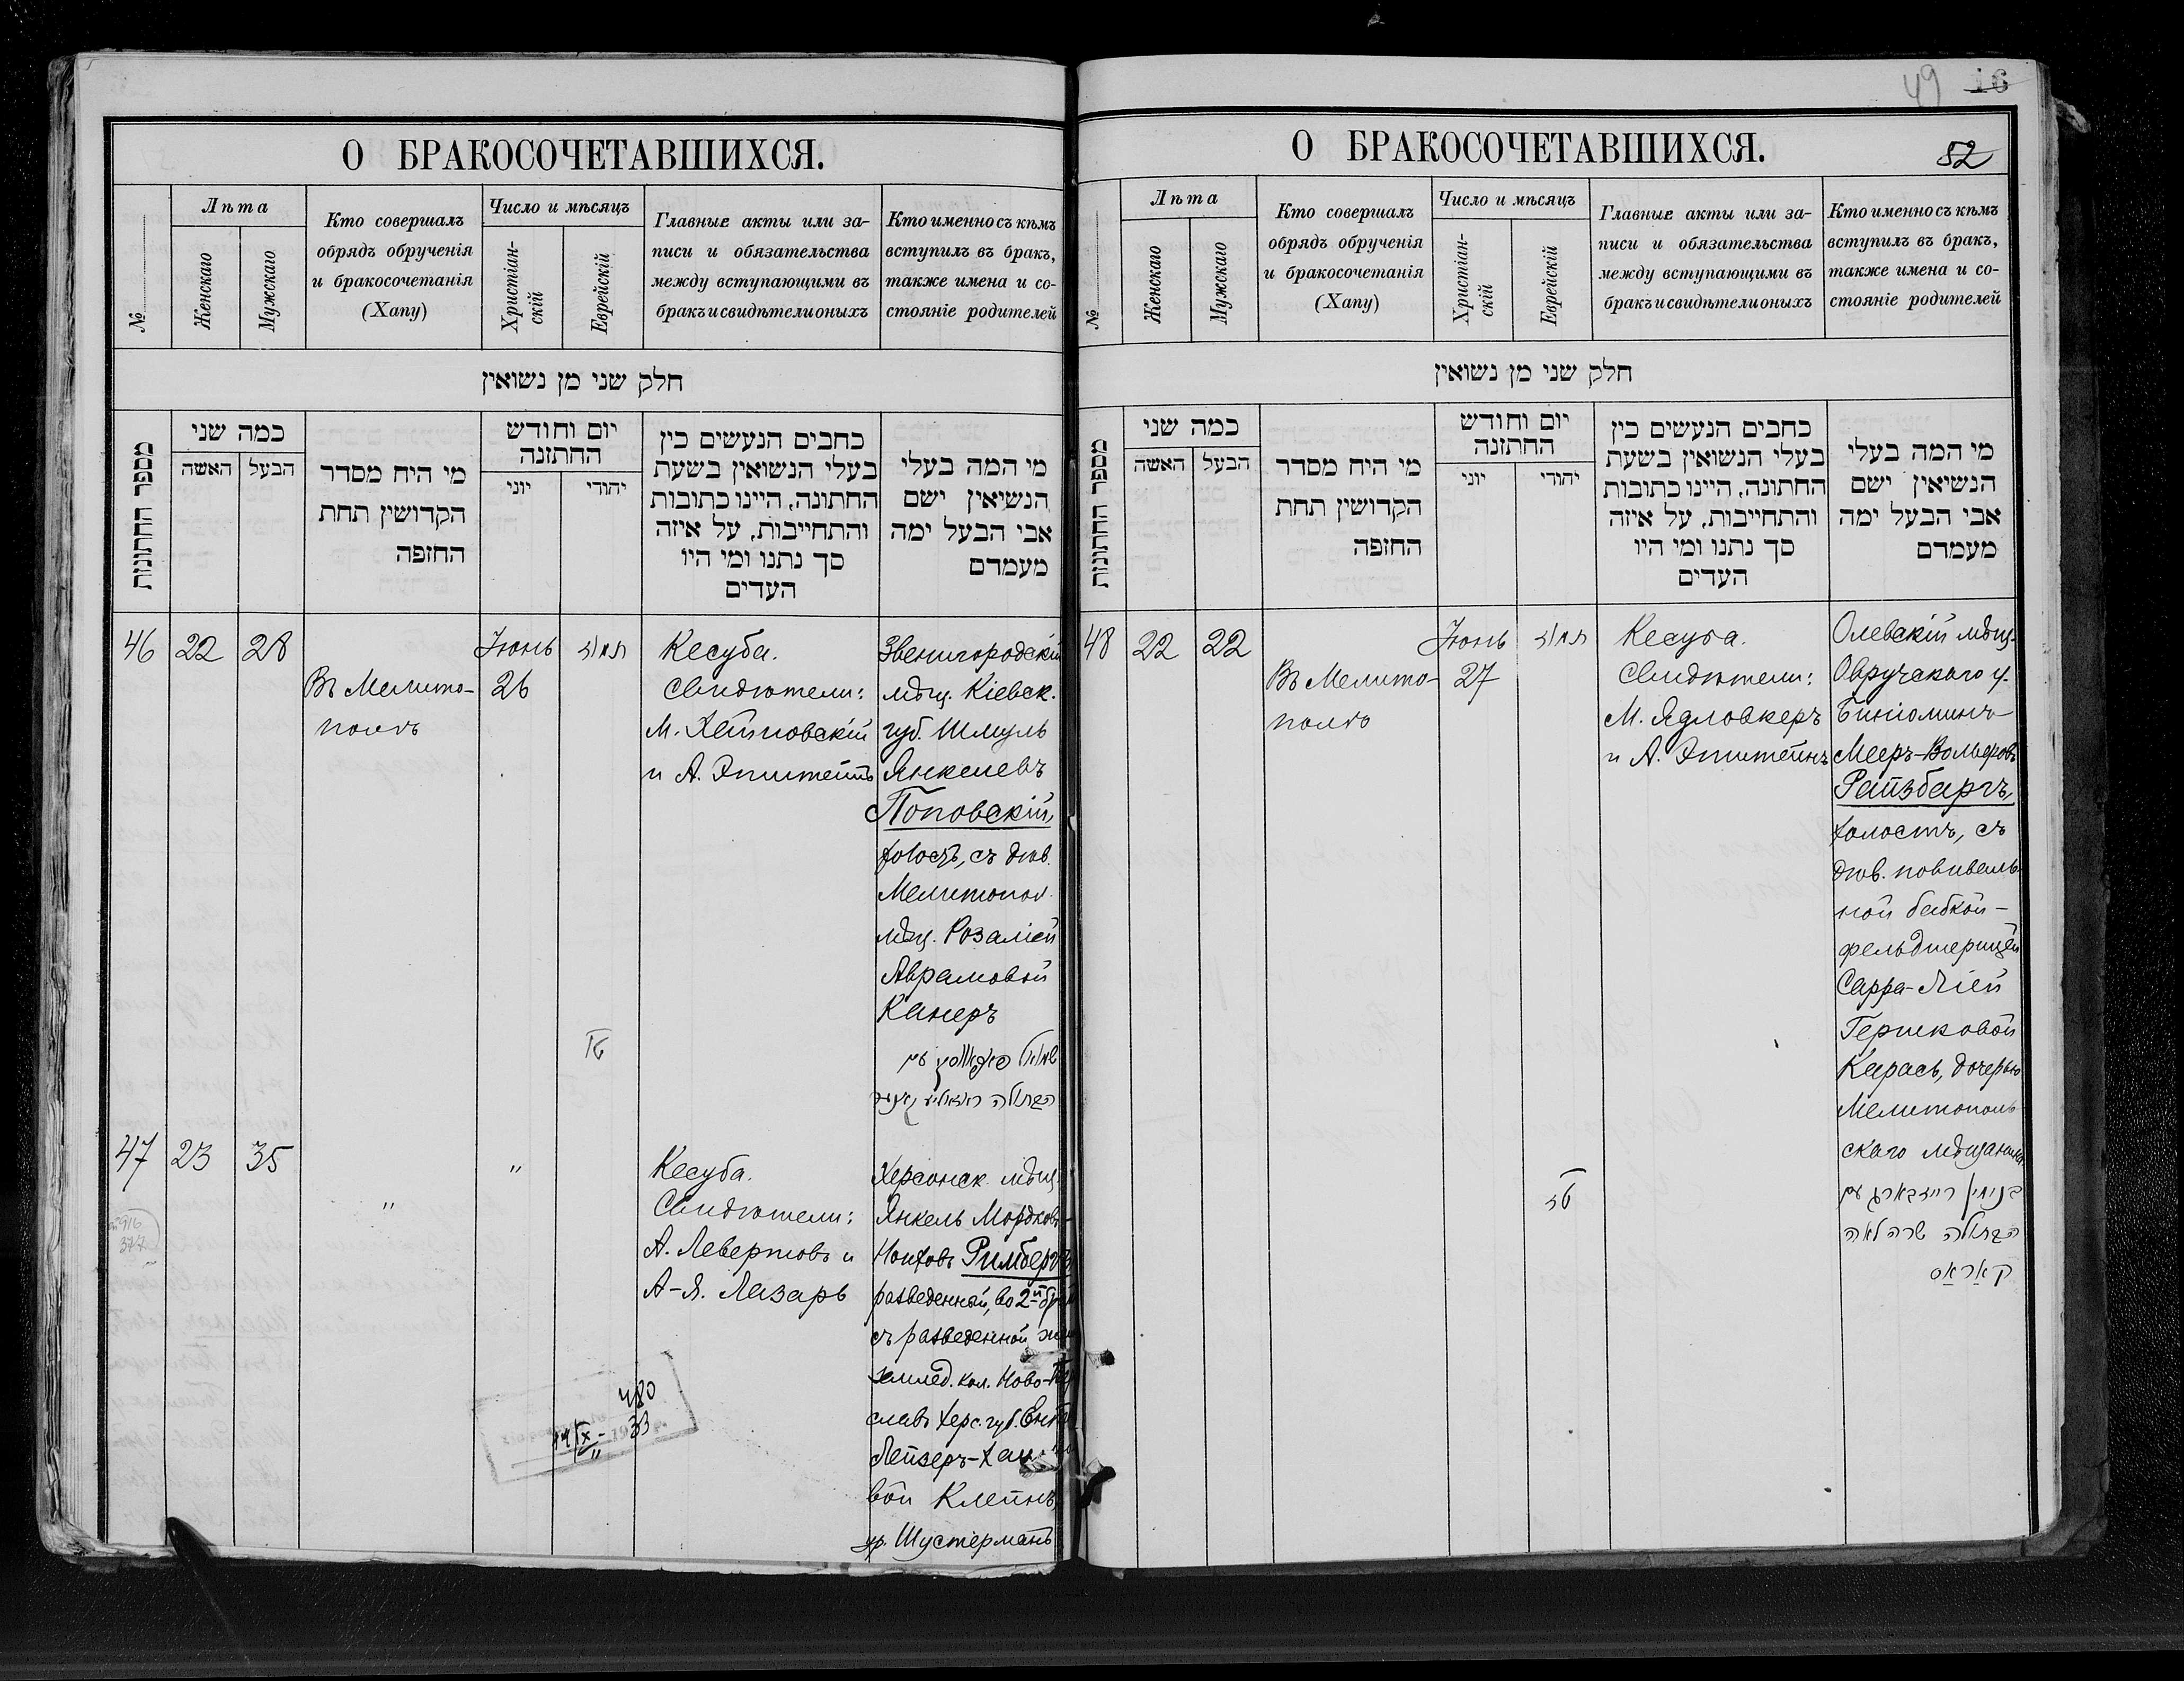 О БРАКОСОЧЕТАВШИХСЯ.
№
Лѣта
Женскаго
Мужскаго
Кто совершалъ
обрядъ обрученія
и бракосочетанія
(Хапу)
Число и мѣсяцъ
Христіан-
скій
Еврейскій
Главные акты или за-
писи и обязательства
между вступающими въ
бракъ и свидѣтели оныхъ
Кто именно съ кѣмъ
вступилъ въ бракъ,
также имена и со-
стояніе родителей
חלק שני מן נשואין
מספר החתונות
כמה שני
האשה
הבעל
מי היח מסדר
הקדושין תחת
החופה
יום וחודש
החתונה
יוני
יהודי
כתבים הנעשים בין
בעלי הנשואין בשעת
החתונה, היינו כתובות
והתחייבות, על איזה
סך נתנו ומי היו
העדים
מי המה בעלי
הנשיאין ישם
אבי הבעל ימה
מעמדם
46
22
28
Въ Мелито-
полѣ
Іюнь
26
תמוז
Кесуба.
Свидѣтели:
М. Хейповскій
и А. Эпштейнъ
Звенигородскій
мѣщ. Кіевск.
губ. Шмуль
Янкелевъ
Поповскій,
холостъ, съ дѣв.
Мелитопол.
мѣщ. Розаліей
Аврамовой
Канеръ
47
23
35
"
"
Кесуба.
Свидѣтели:
А. Левертовъ и
А-Я. Лазарь
Херсонск. мѣщ.
Янкель Мордков-
Нотовъ Римбергъ
разведенный, во 2-й
съ разведенной
землед. кол. Ново-
славъ Херс. губ.
Лейзеръ-
вой Клейнъ,
ур. Шустерманъ
480
33
49
16
О БРАКОСОЧЕТАВШИХСЯ.
52
№
Лѣта
Женскаго
Мужскаго
Кто совершалъ
обрядъ обрученія
и бракосочетанія
(Хапу)
Число и мѣсяцъ
Христіан-
скій
Еврейскій
Главные акты или за-
писи и обязательства
между вступающими въ
бракъ и свидѣтели оныхъ
Кто именно съ кѣмъ
вступилъ въ бракъ,
также имена и со-
стояніе родителей
חלק שני מן נשואין
מספר החתונות
כמה שני
האשה
הבעל
מי היח מסדר
הקדושין תחת
החופה
יום וחודש
החתונה
יוני
יהודי
כתבים הנעשים בין
בעלי הנשואין בשעת
החתונה, היינו כתובות
והתחייבות, על איזה
סך נתנו ומי היו
העדים
מי המה בעלי
הנשיאין ישם
אבי הבעל ימה
מעמדם
48
22
22
Въ Мелито-
полѣ
Іюнь
27
תמוז
Кесуба.
Свидѣтели:
М. Ядловкеръ
и А. Эпштейнъ
Олевскій мѣщ.
Овручскаго у.
Биніоминъ-
Мееръ-Вольковъ
Райзбаргъ,
холостъ, съ
дѣв. повиваль-
ной бабкой-
фельдшерицей
Сарра-Ліей
Гершковой
Карась, дочерью
Мелитополь-
скаго мѣщанина
בנימין רייזבארג עם
הבתולה שרה לאה
קאראס